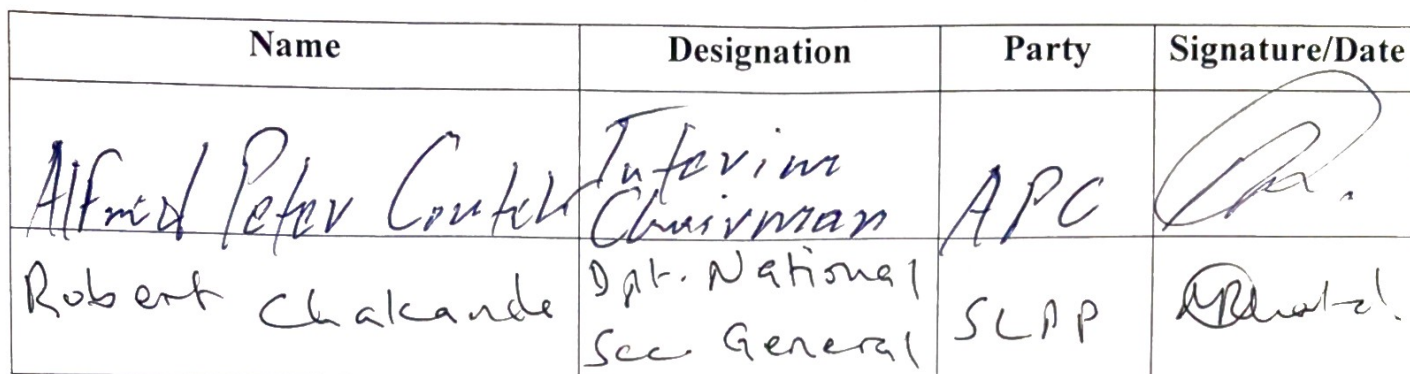 Name Designation Party Signature/Date
Alfred Peter Conteh Interim Chairman APC
Robert Chakanda Dpt. National Sec. General SLPP